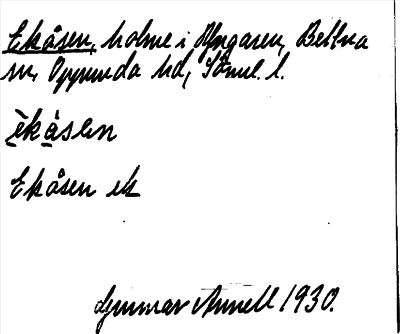 Ekåsen, holme i Yngaren, Bettna
sn, Oppunda hd, Söml. l.
èkàsen
Ekåsen ek
Gunnar Annell 1930.